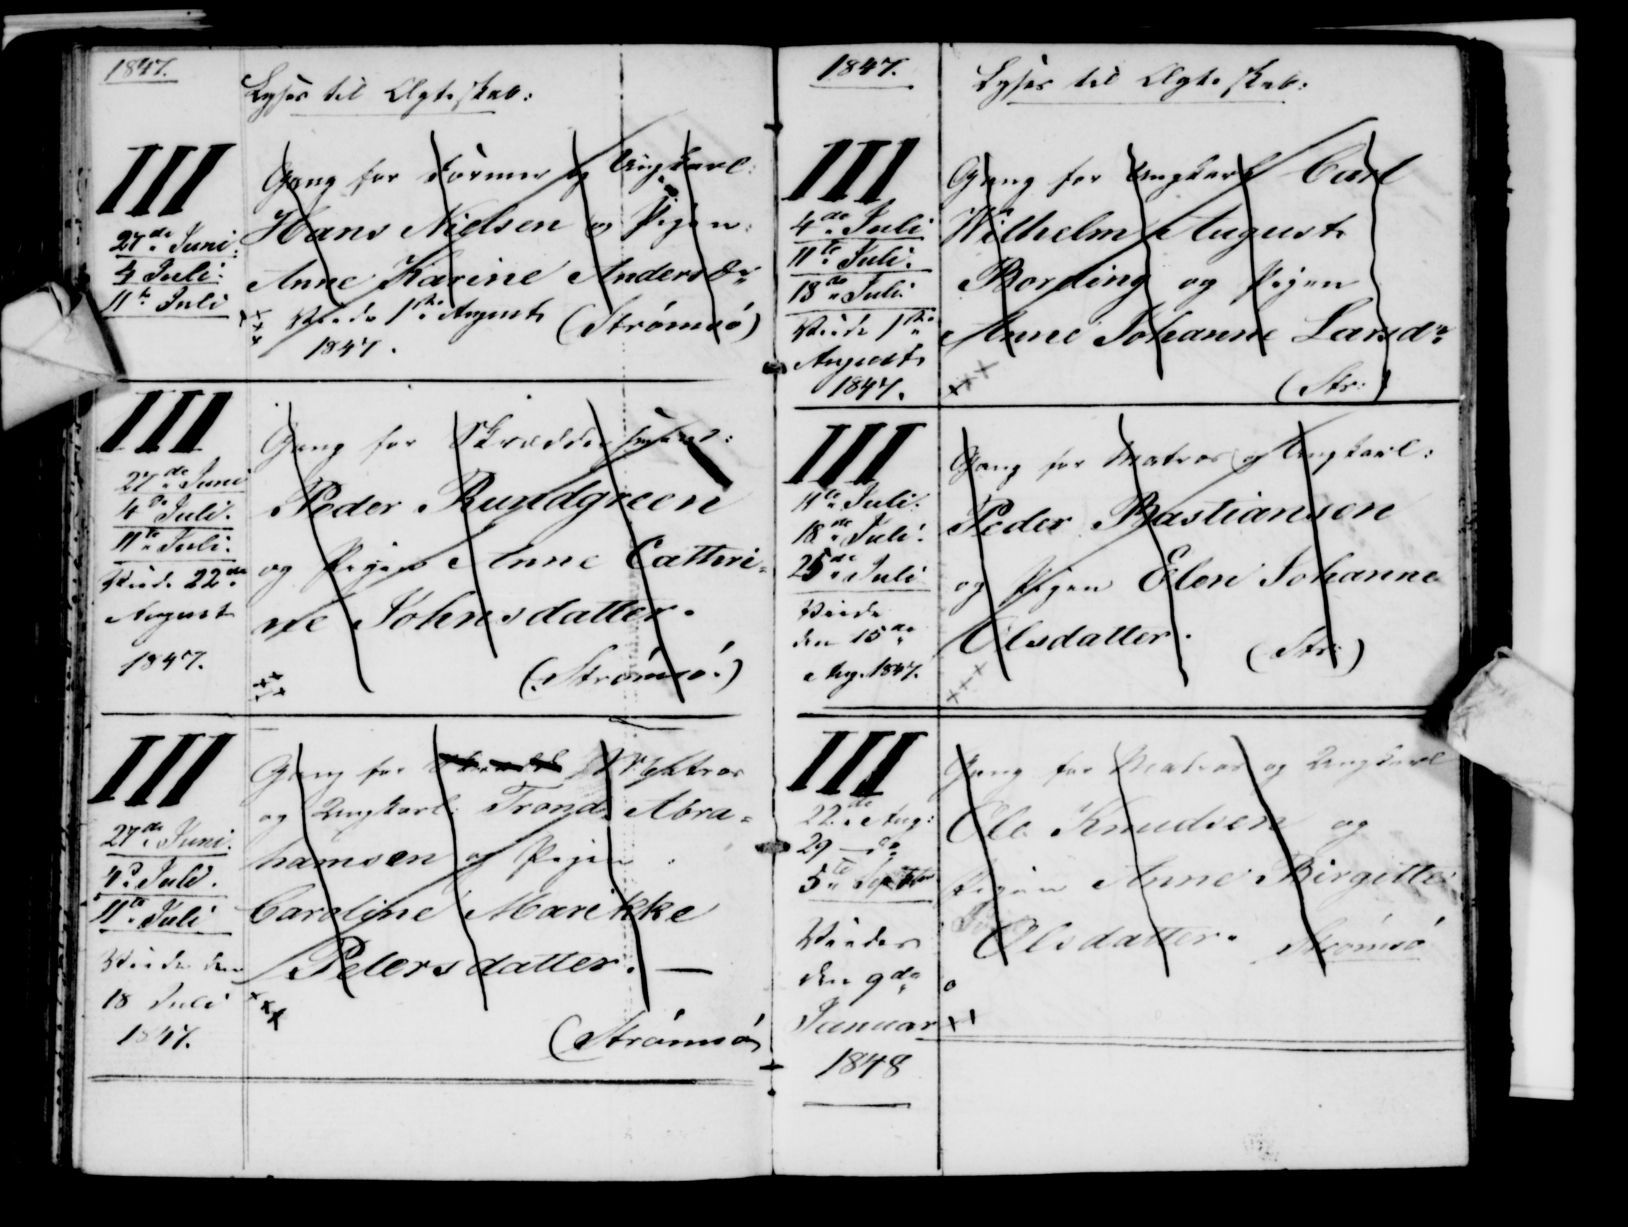 1847.
Lyses til Ægteskab:
III
Gang for Former og Ungkarl:
Hans Nielsen og Pigen:
Anne Karine Andersdr
27de Juni:
4 Juli:
11te Juli
Viede 1ste August (Strømsø)
1847.
III
Gang for Skrædder
Peder Rundgreen
og Pigen Anne Cathri=
ne Johnsdatter.
(Strømsø.)
27de Juni
4de Juli.
11te Juli.
Viede 22de
August
1847.
III
Gang for Matros
og Ungkarl: Trond Abra=
hamsen og Pigen:
Caroline Marikke
Petersdatter. —
(Strømsø)
27de Juni.
4de Juli.
11te Juli
Viede den
18 Juli
1847.
1847.
Lyses til Ægteskab:
III
Gang for Ungkarl Carl
Wilhelm August
Bording og Pigen
Anne Johanne Larsdr
(Str:)
4de Juli
11te Juli.
18de Juli.
Viede 1ste
August
1847.
III
Gang for Matros og Ungkarl:
Peder Bastiansen
og Pigen Elen Johanne
Olsdatter. (Str:)
11te Juli.
18de Juli.
25de Juli
Viede
den 15de
Aug. 1847.
III
Gang for Matros og Ungkarl
Ole Knudsen og
Pigen Anne Birgitte
Olsdatter. Strømsø
22de Aug:
29 — do
5te Septbr
Viedes
den 9de
Januar
1848